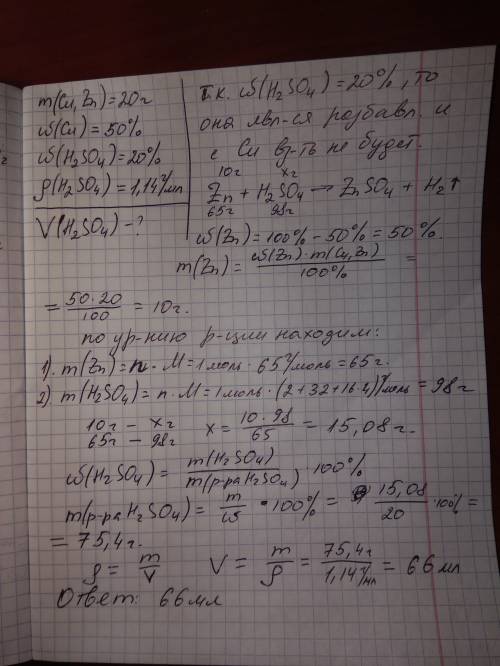 m(Cu, Zn) = 20г
ω(Cu) = 50%
ω(H₂SO₄) = 20%
ρ(H₂SO₄) = 1,14 г/мл
V(H₂SO₄) - ?
т.к. ω(H₂SO₄) = 20%, то
она явл-ся разбавл. и
с Cu вз-ть не будет.
10г xг
Zn + H₂SO₄ → ZnSO₄ + H₂↑
65г 98г
ω(Zn) = 100% - 50% = 50%.
m(Zn) = ω(Zn) · m(Cu, Zn) / 100% =
= 50 · 20 / 100 = 10г.
по ур-нию р-ции находим:
1). m(Zn) = n · M = 1 моль · 65 г/моль = 65г.
2) m(H₂SO₄) = n · M = 1 моль · (2 + 32 + 16 · 4) г/моль = 98г
10г – xг
65г – 98г x = 10 · 98 / 65 = 15,08г.
ω(H₂SO₄) = m(H₂SO₄) / m(р-ра H₂SO₄) · 100%
m(р-ра H₂SO₄) = m / ω · 100% = 15,08 / 20 · 100% =
= 75,4г.
ρ = m / V V = m / ρ = 75,4г / 1,14 г/мл = 66 мл
Ответ: 66 мл